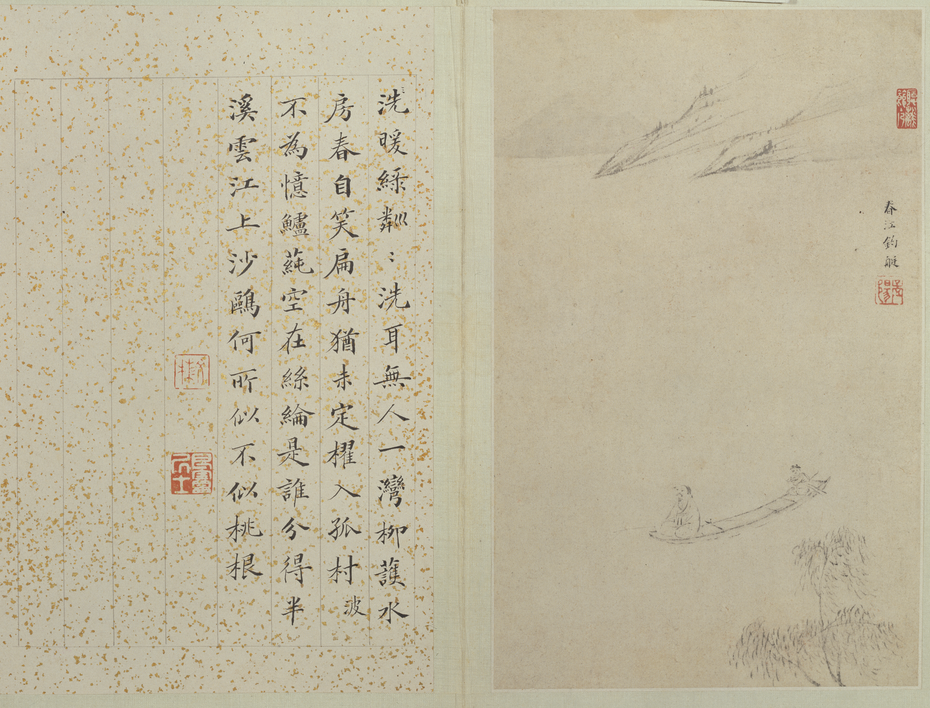 春江釣艇
洗暖綠粼〻洗耳無人一灣柳護水
房春自笑扁舟猶未定櫂入孤村波
不為憶鱸蒓空在絲綸是誰分得半
溪雲江上沙鷗何所似不似桃根